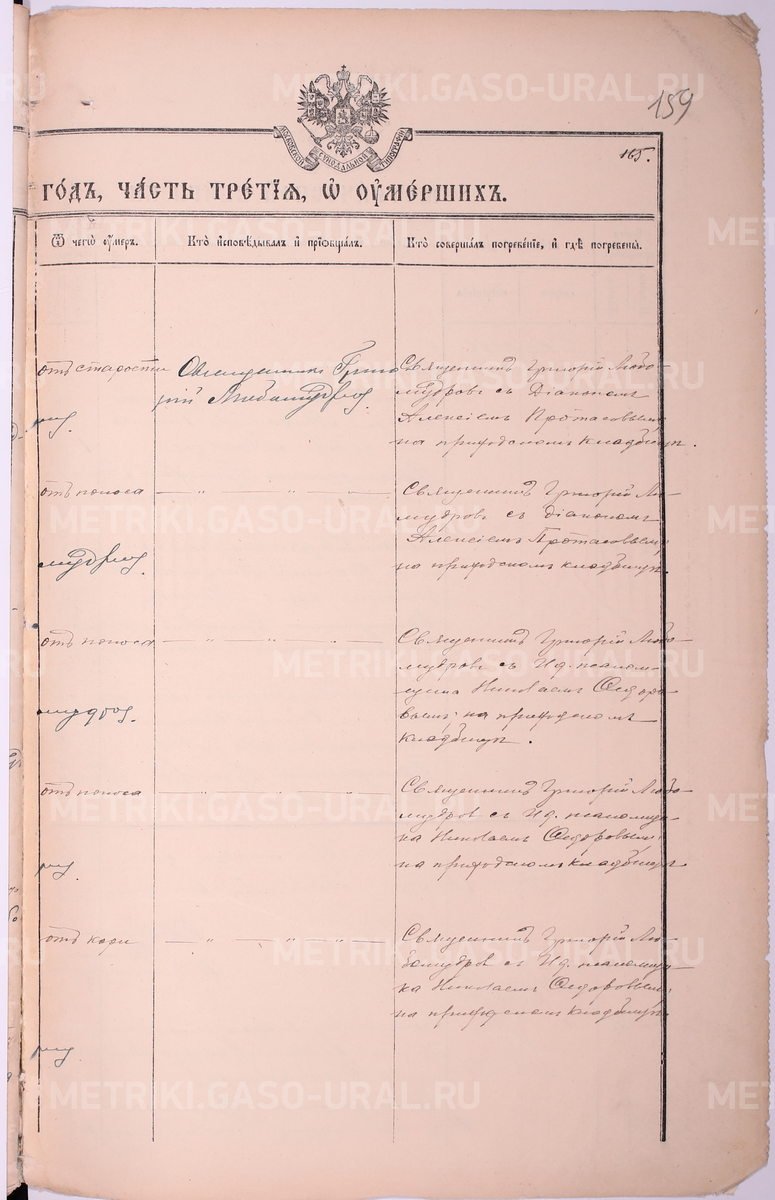 159
МОСКОВСКОЙ СѴНОДАЛЬНОЙ ТИПОГРАФІИ
165.
го́дъ, ча́сть тре́тїѧ, ѡ҆ ᲂу҆ме́ршихъ.
Ѿ чегѡ̀ ᲂу҆́меръ.
Кто̀ и҆сповѣ́дывалъ и҆ прїѻбща́лъ.
Кто̀ соверша́лъ погребе́нїе, и҆ гдѣ̀ погребены̀.
отъ старости
Священникъ Григо
рій Любомудровъ
Священникъ Григорій Любо-
мудровъ съ Діакономъ
Алексіемъ Протасовымъ
на приходскомъ кладбищѣ.
отъ поноса
— „ — „ —
Священникъ Григорій Лю-
мудровъ съ діакономъ
Алексіемъ Протасовымъ
на приходскомъ кладбищѣ.
мудровъ.
отъ поноса
— „ — „ —
Священникъ Григорій Любо-
мудровъ съ И. д. псалом-
щика Николаемъ Ѳедоро-
вымъ на приходскомъ
кладбищѣ.
мудровъ.
отъ поноса
— „ — „ —
Священникъ Григорій Любо-
мудровъ съ И. д. псаломщи-
ка Николаемъ Ѳедоровымъ
на приходскомъ кладбищѣ
отъ кори
— „ — „ — „ —
Священникъ Григорій Лю-
бомудровъ съ И. д. псаломщи-
ка Николаемъ Ѳедоровымъ
на приходскомъ кладбищѣ
METRIKI.GASO-URAL.RU